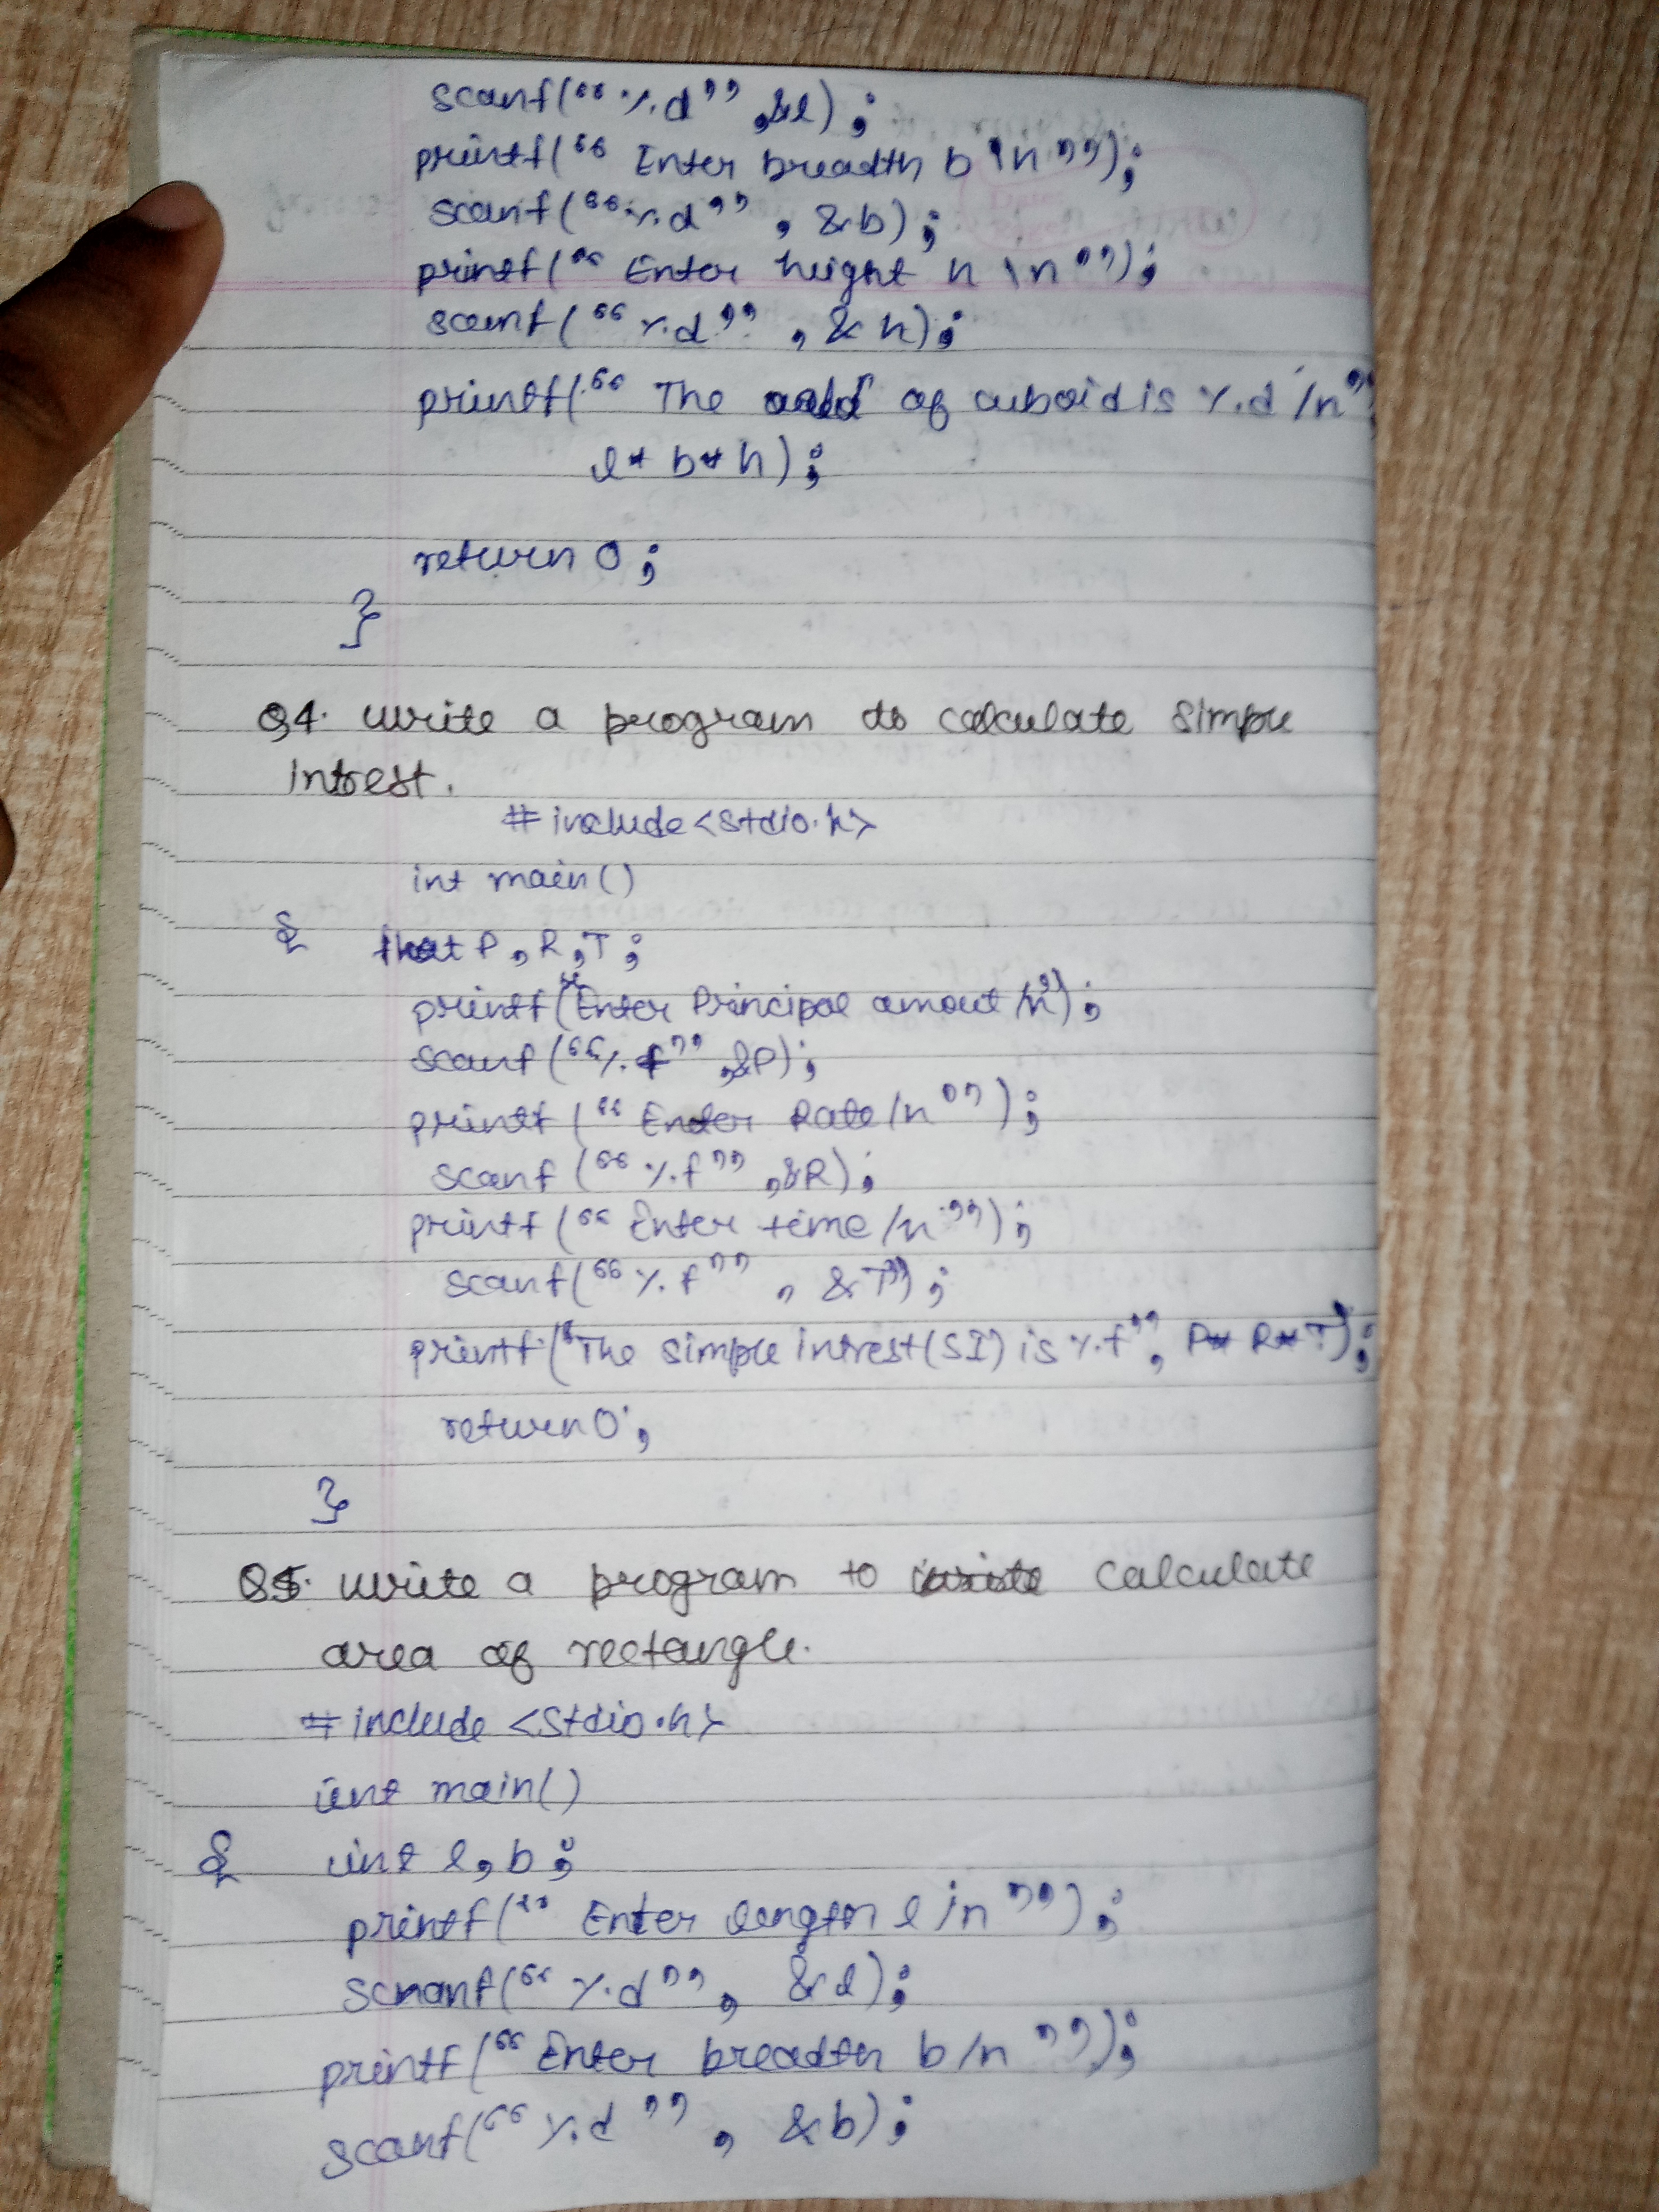 scanf(“%d”, &l);
printf(“Enter breadth b \n”);
scanf(“%d”, &b);
printf(“Enter height h \n”);
scanf(“%d”, &h);
printf(“The of cuboid is %d /n”
l* b* h);
return 0;
}
Q4. Write a program to calculate simple
intrest.
#include<stdio.h>
int main()
{ float P, R, T;
printf(“Enter Principal amout /n”);
scanf(“%f”, &P);
printf(“Enter Rate /n”);
scanf(“%f”, &R);
printf(“Enter time /n”);
scanf(“%f”, &T”);
printf(“The simple intrest(SI) is %f”, P* R* T);
return 0;
}
Q5. Write a program to calculate
area of rectangle.
#include <stdio.h>
int main()
{ int l, b;
printf(“Enter length l /n”);
scnanf(“%d”, &l);
printf(“Enter breadth b /n”);
scanf(“%d”, &b);